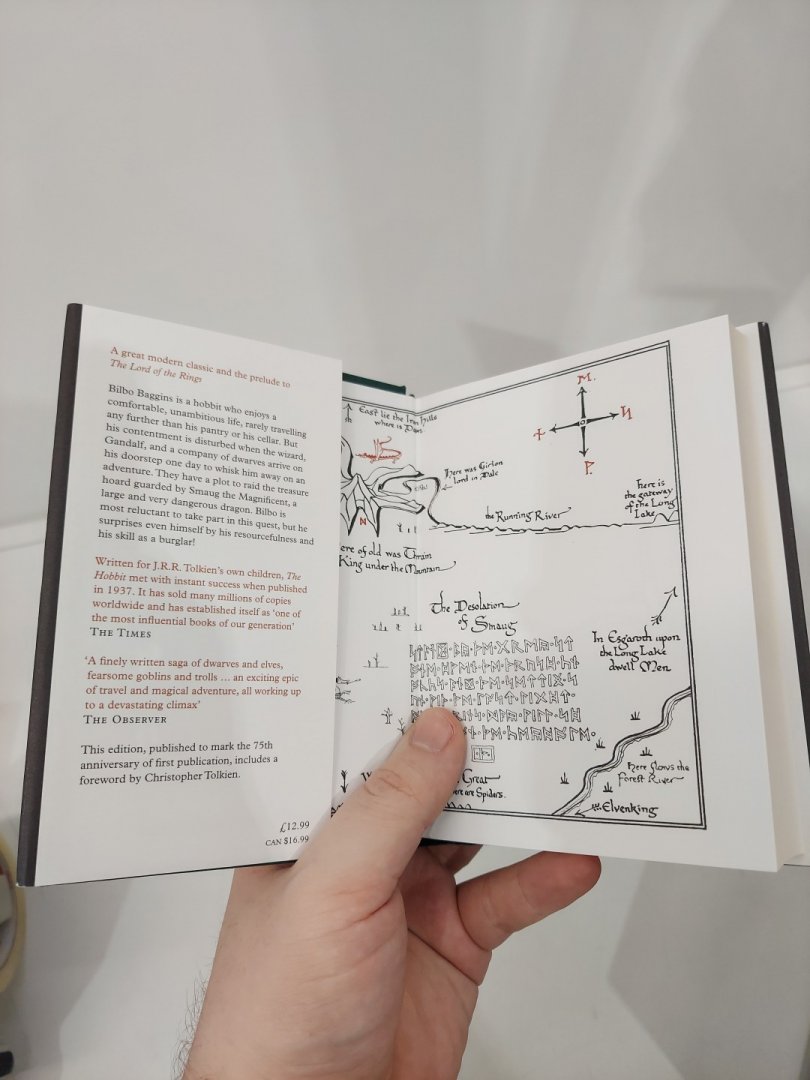 A great modern classic and the prelude to
The Lord of the Rings
Bilbo Baggins is a hobbit who enjoys a
comfortable, unambitious life, rarely travelling
any further than his pantry or his cellar. But
his contentment is disturbed when the wizard,
Gandalf, and a company of dwarves arrive on
his doorstep one day to whisk him away on an
adventure. They have a plot to raid the treasure
hoard guarded by Smaug the Magnificent, a
large and very dangerous dragon. Bilbo is
most reluctant to take part in this quest, but he
surprises even himself by his resourcefulness and
his skill as a burglar!
Written for J.R.R. Tolkien's own children, The
Hobbit met with instant success when published
in 1937. It has sold many millions of copies
worldwide and has established itself as 'one of
the most influential books of our generation'
THE TIMES
'A finely written saga of dwarves and elves,
fearsome goblins and trolls … an exciting epic
of travel and magical adventure, all working up
to a devastating climax'
THE OBSERVER
This edition, published to mark the 75th
anniversary of first publication, includes a
foreword by Christopher Tolkien.
£12.99
CAN $16.99
East lie the Iron Hills
where is Dain
Here was Girion
lord in Dale
the Running River
Here is
the gateway
of the Long
Lake
of old was Thrain
King under the Mountain
The Desolation
of Smaug
In Esgaroth upon
the Long Lake
dwell Men
Great
are Spiders.
Here flows the
Forest River
Elvenking